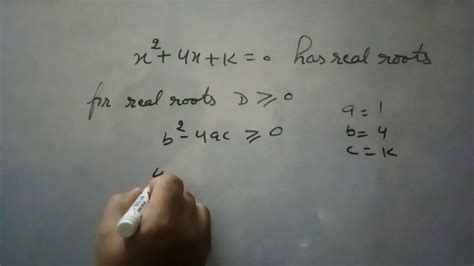 x² + 4x + k = 0 has real roots
for real roots D ≥ 0
a = 1
b² - 4ac ≥ 0
b = 4
c = k